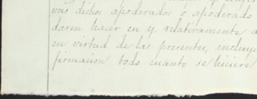 mis dichos apoderados ó apoderado
deren hacer en y relativamente a
en virtud de las presentes, incluye
firmacion todo cuanto se hiciere